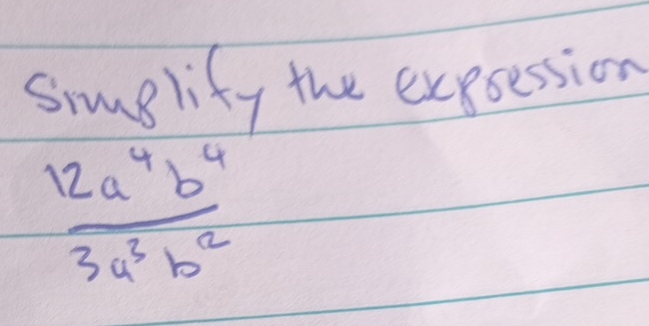 Simplify the expression
12a⁴b⁴
3a³b²